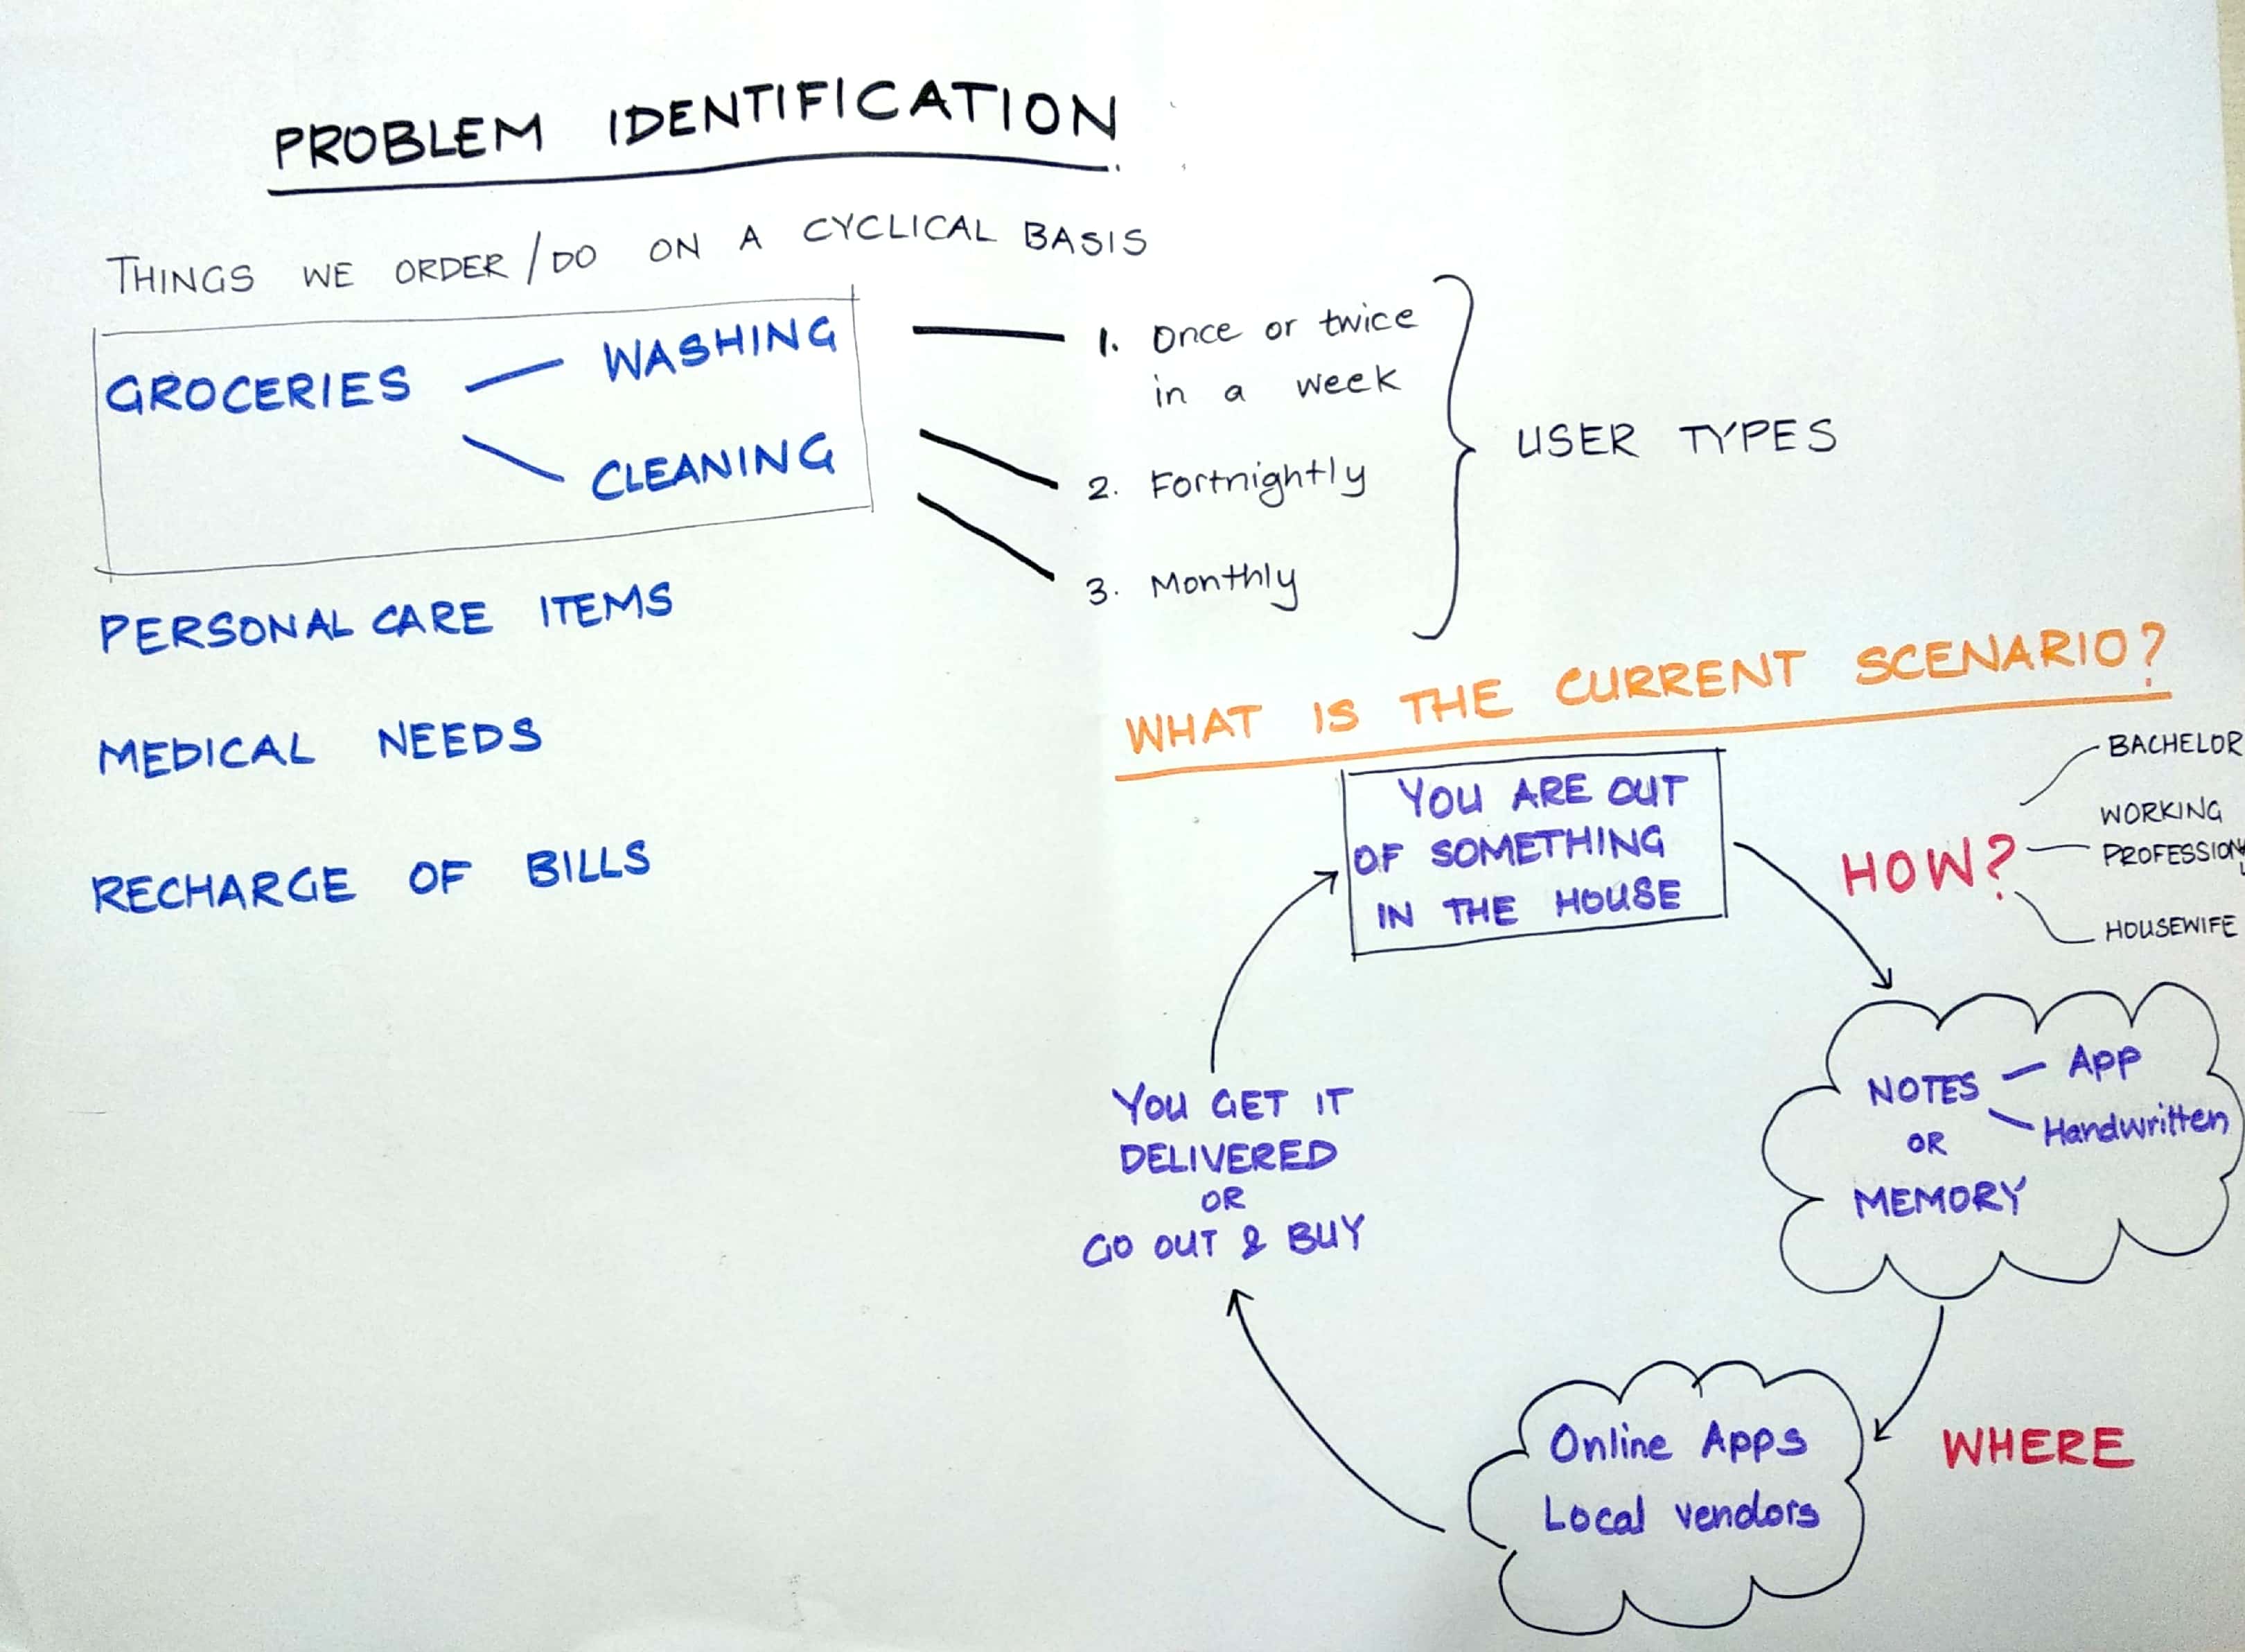 PROBLEM IDENTIFICATION
THINGS WE ORDER/DO ON A CYCLICAL BASIS
GROCERIES
WASHING
CLEANING
1. Once or twice
in a week
2. Fortnightly
3. Monthly
USER TYPES
PERSONAL CARE ITEMS
MEDICAL NEEDS
RECHARGE OF BILLS
WHAT IS THE CURRENT SCENARIO?
YOU ARE OUT
OF SOMETHING
IN THE HOUSE
HOW?
BACHELOR
WORKING
PROFESSION
HOUSEWIFE
NOTES
App
Handwritten
OR
MEMORY
WHERE
Online Apps
Local vendors
YOU GET IT
DELIVERED
OR
GO OUT & BUY